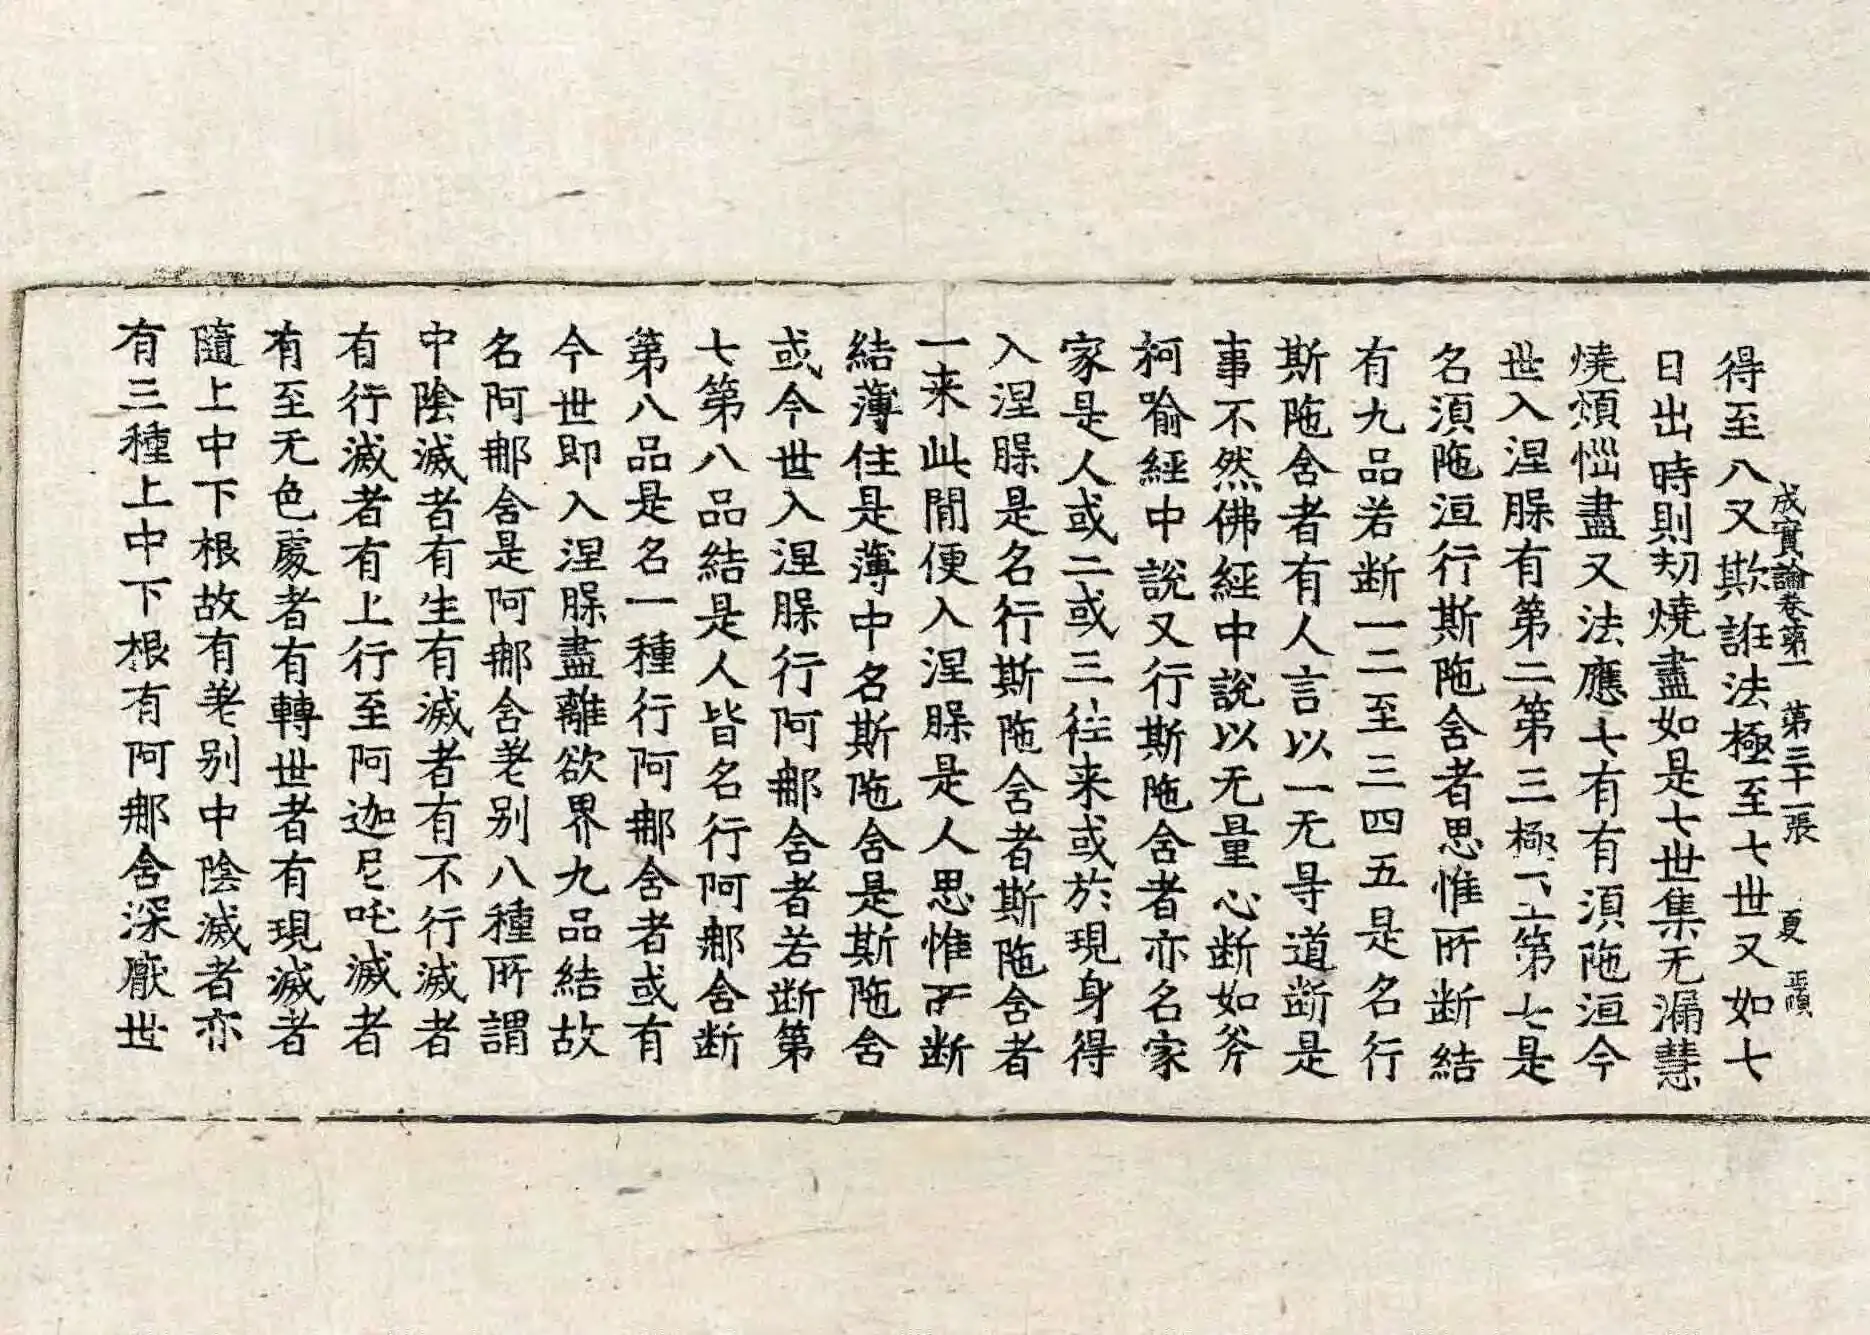 成實論卷第一　第三十一張　夏
得至八又欺誑法極至七世又如七
日出時則劫燒盡如是七世集无漏慧
燒煩惱盡又法應七有有須陁洹今
世入涅脲有第二第三極下至第七是
名須陁洹行斯陁舍者思惟所断結
有九品若断一二至三四五是名行
斯陁舍者有人言以一无㝵道断是
事不然佛經中說以无量心断如斧
柯喻經中說又行斯陁舍者亦名家
家是人或二或三往来或於現身得
入涅脲是名行斯陁舍者斯陁舍者
一来此閒便入涅脲是人思惟所断
結薄住是薄中名斯陁舍是斯陁舍
或今世入涅脲行阿那舍者若断第
七第八品結是人皆名行阿那舍断
第八品是名一種行阿那舍者或有
今世即入涅脲盡離欲界九品結故
名阿那舍是阿那舍差别八種所謂
中陰滅者有生有滅者有不行滅者
有行滅者有上行至阿迦尼吒滅者
有至无色處者有轉世者有現滅者
隨上中下根故有差别中陰滅者亦
有三種上中下根有阿那舍深厭世